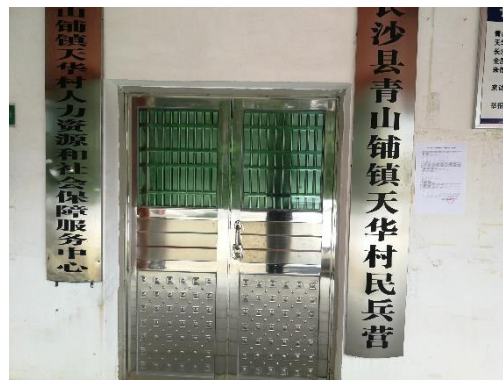 山铺镇天华村人力资源和社会保障服务中心
长沙县青山铺镇天华村民兵营